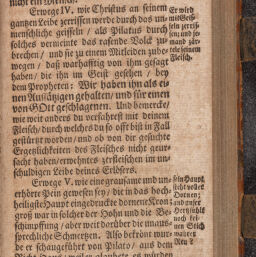 nicht ein Mensch.
Erwege IV. wie Christus an seinem
gantzen Leibe zerrissen werde durch das un-
menschliche geisseln / als Pilatus durch
solches vermeinte das rasende Volck zu
brechen / und sie zu einem Mitleiden zube-
wegen / daß warhafftig von ihm gesagt
haben / die ihn im Geist gesehen / bey
dem Propheten: Wir haben ihn als ei-
nen Aussätzigen gehalten / und für einen
von GOtt geschlagenen. Und bemercke /
wie weit anders du verfahrest mit deinem
Fleisch / durch welches du so offt bist in Fall
gestürtzt worden / und ob von dir gesuchte
Ergetzlichkeiten des Fleisches nicht geur-
sacht haben / erwehntes zerfleischen im un-
schuldigen Leibe deines Erlösers.
Erwege V. wie eine grausame und un-
erhörte Pein gewesen sey / die in das hoch-
heiligste Haupt eingedruckte dornerne Kron;
groß war in solcher der Hohn und die Be-
schimpffung / aber weit darüber die unaus-
sprechliche Schmertzen. Also bekrönt wur-
de er fürgeführt von Pilato / auß dem
Er wird
mit Geiß-
seln zerriss-
sen; und je-
mand zär-
tele seinem
Fleisch.
sein Haupt
steht voller
Dörner;
und unser
Hertz fühlt
noch kei-
nen Stich
wahrer
Reu?